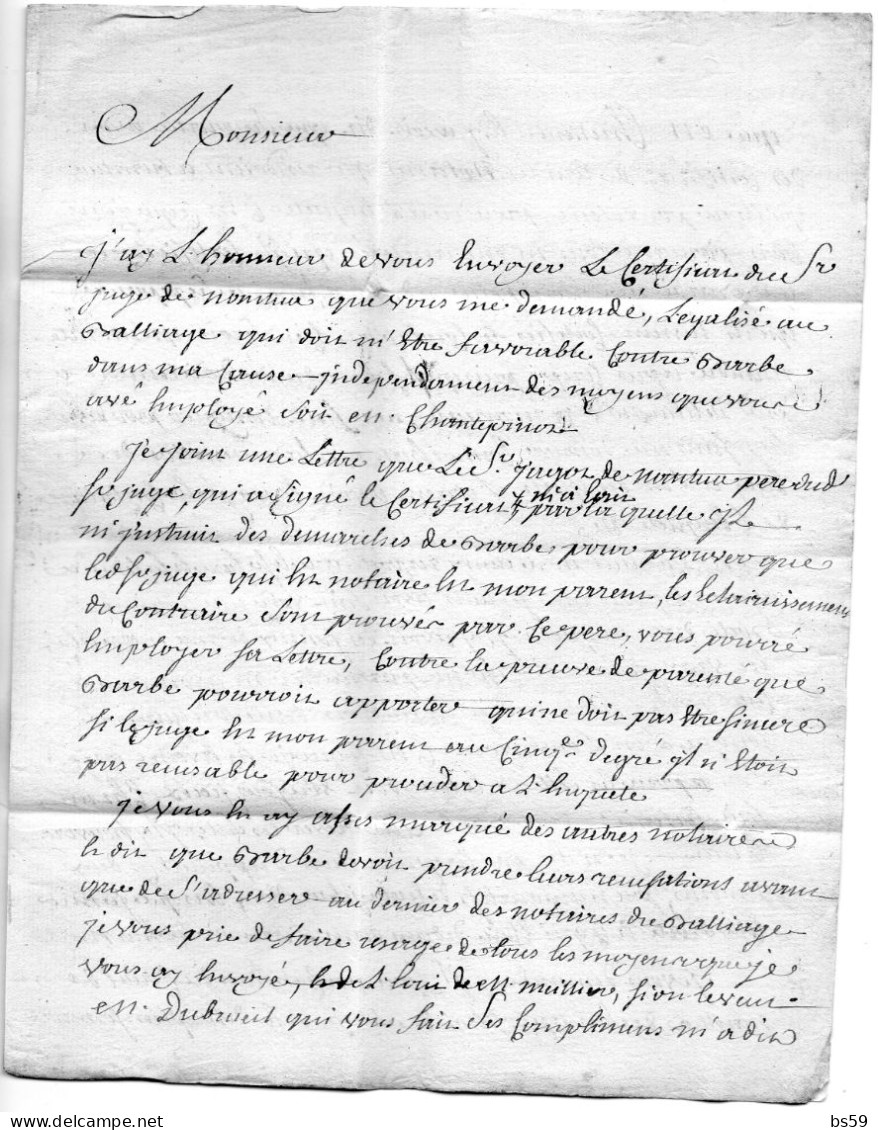 Monsieur
j'ay L'honneur de vous Envoyer Le Certificat du Sr
juge de nantua que vous me demandé, Legalisé au
Balliage qui doit m'Etre favorable Contre Barbe
dans ma Cause jndependament des moyens que vous
avé Employé soit en
Je joint une Lettre que Le Sr. jagot de nantua pere dud
Sr juge, qui a signé le Certificat m'a Ecrit par la quelle jl
m'jnstruit des demarches de Barbe pour prouver que
led Sr juge qui Est notaire Est mon parent, les Eclaircissemens
du Contraire sont prouvés par Ce pere, vous pourré
Employer sa Lettre, Contre la preuve de parenté que
Barbe pourroit apporter qui ne doit pas Etre sincere
si le juge Est mon parent au Cinqe. degré jl n'Etoit
pas recusable pour proceder a L'Enquete
je vous En ay assés marqué des autres notaires
Et dit que Barbe devoit prendre leurs recusations avant
que de s'adresser au dernier des notaires du Balliage
je vous prie de faire usage de tous les moyens que je
vous ay Envoyé, de M. si on le veut
M. Dubreuil qui vous fait ses Complimens m'a dit
bs59